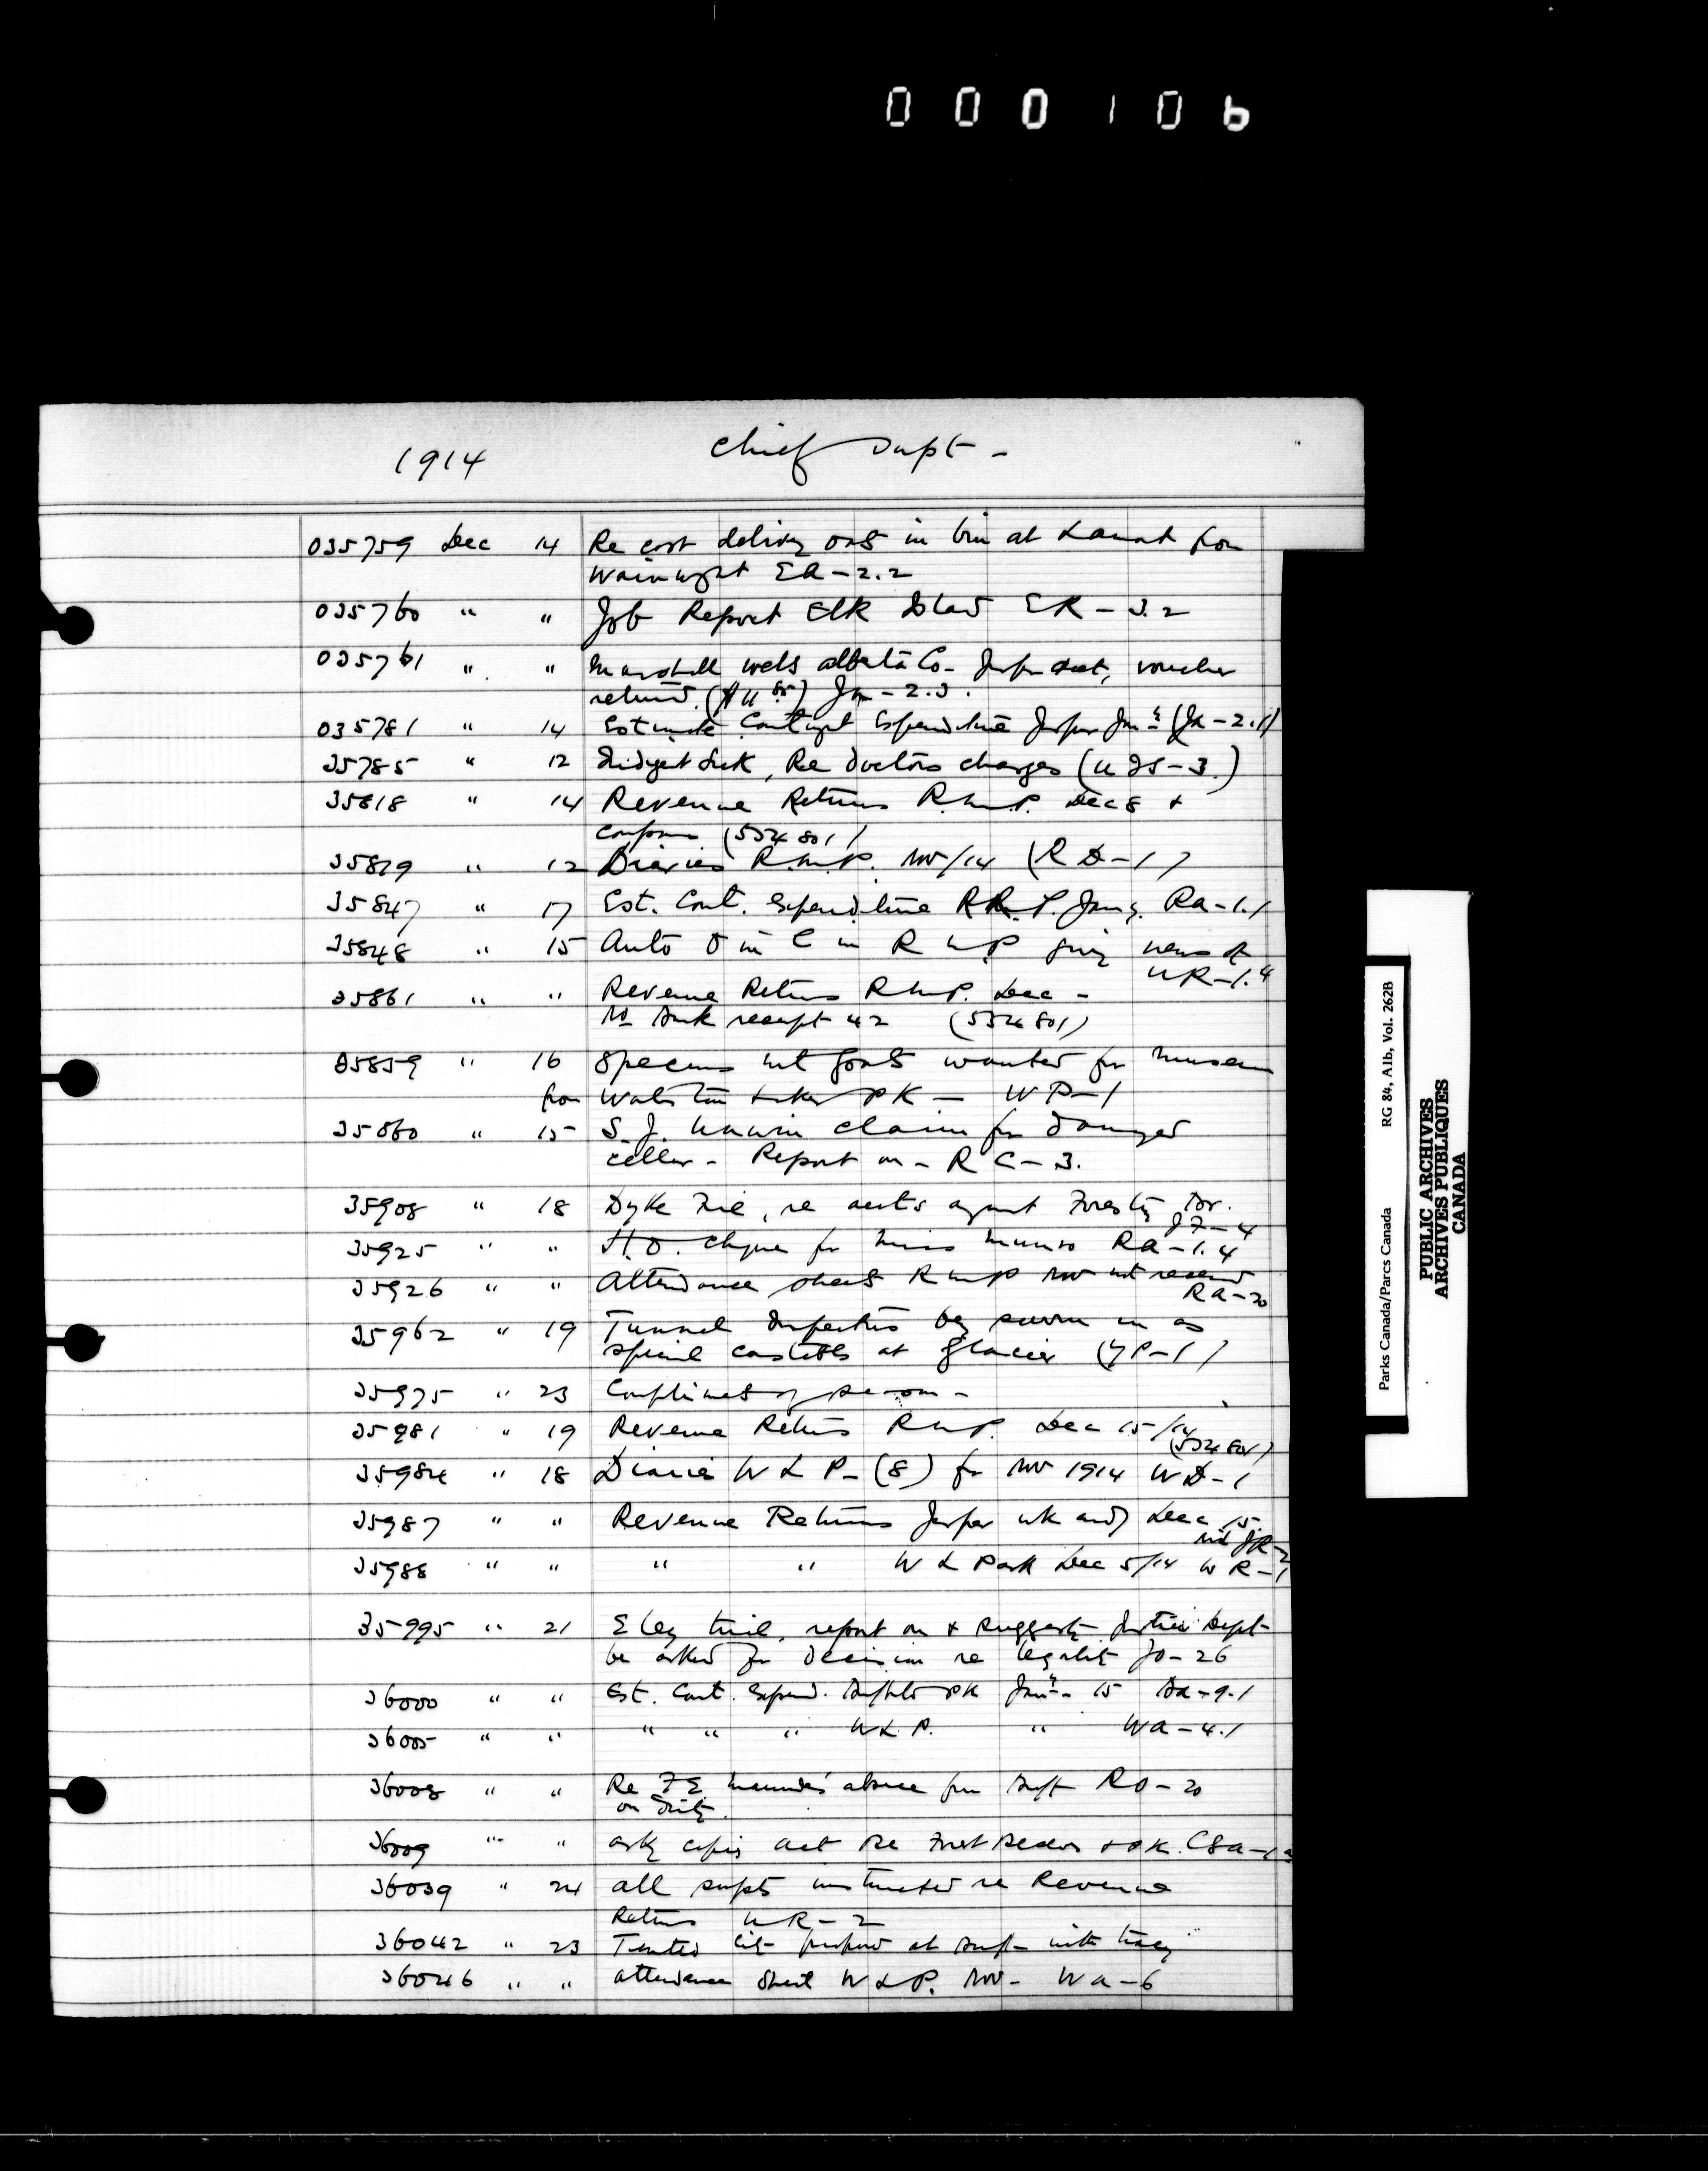 000106
1914 Chief Supt -
035759 Dec 14 Re cost delivy oats in bin at Lamont from
Wainwright EA-2.2
035760 " " Job Report Elk Island ER-3.2
035761 " " Marshall Wells Alberta Co- Jasper acct, voucher
returned
035781 " 14 Estimate Contingt Expenditure Jasper Jany (Ja-2.1)
35785 " 12 Re Doctors charges
35818 " 14 Revenue Returns R.M.P. Dec 8 &
coupons (534801)
35819 " 12 Diaries R.M.P. Nov/14 (RD-1)
35847 " 17 Est. Cont. Expenditure R.M.P. Jany. Ra-1.1
35848 " 15 Auto O in C in RMP giving news of
UR-1.4
35861 " " Revenue Returns RMP. Dec -
receipt 42 (534801)
35859 " 16 Specimens mt goats wanted for museum
from Waterton Lakes Pk - WP-1
35860 " 15 S.J. Unwin claim for damages
cellar - Report on - RC-3.
35908 " 18 re accts against Forestry Br.
JF-4
35925 " " H.O. cheque for Miss Munro Ra-1.4
35926 " " Attendance sheets RMP Nov not received
Ra-20
35962 " 19 Tunnel Inspectors being sworn in as
special constables at Glacier (YP-1)
35975 " 23 Compliments of season -
35981 " 19 Revenue Returns RMP. Dec 15/14
(534801)
35984 " 18 Diaries WLP- (8) for Nov 1914 WD-1
35987 " " Revenue Returns Jasper wk endg Dec 15-
nil JR-2
35988 " " " " W L Park Dec 5/14 WR-1
35995 " 21 trail, report on & suggests Justice Dept
be asked for decision re legality JO-26
36000 " " Est. Cont. Expend. Buffalo Pk Jany- 15 Ba-9.1
36005 " " " " " WLP. " Wa-4.1
36008 " " Re absence from Banff RO-20
on duty.
36009 " " ask copies act re Forest Reserves & Pk.
36039 " 24 all supts instructed re Revenue
Returns UR-2
36042 " 23 Tented city proposed at Banff
36046 " " attendance sheet WLP. Nov- Wa-6
Parks Canada/Parcs Canada RG 84, A1b, Vol. 262B
PUBLIC ARCHIVES
ARCHIVES PUBLIQUES
CANADA